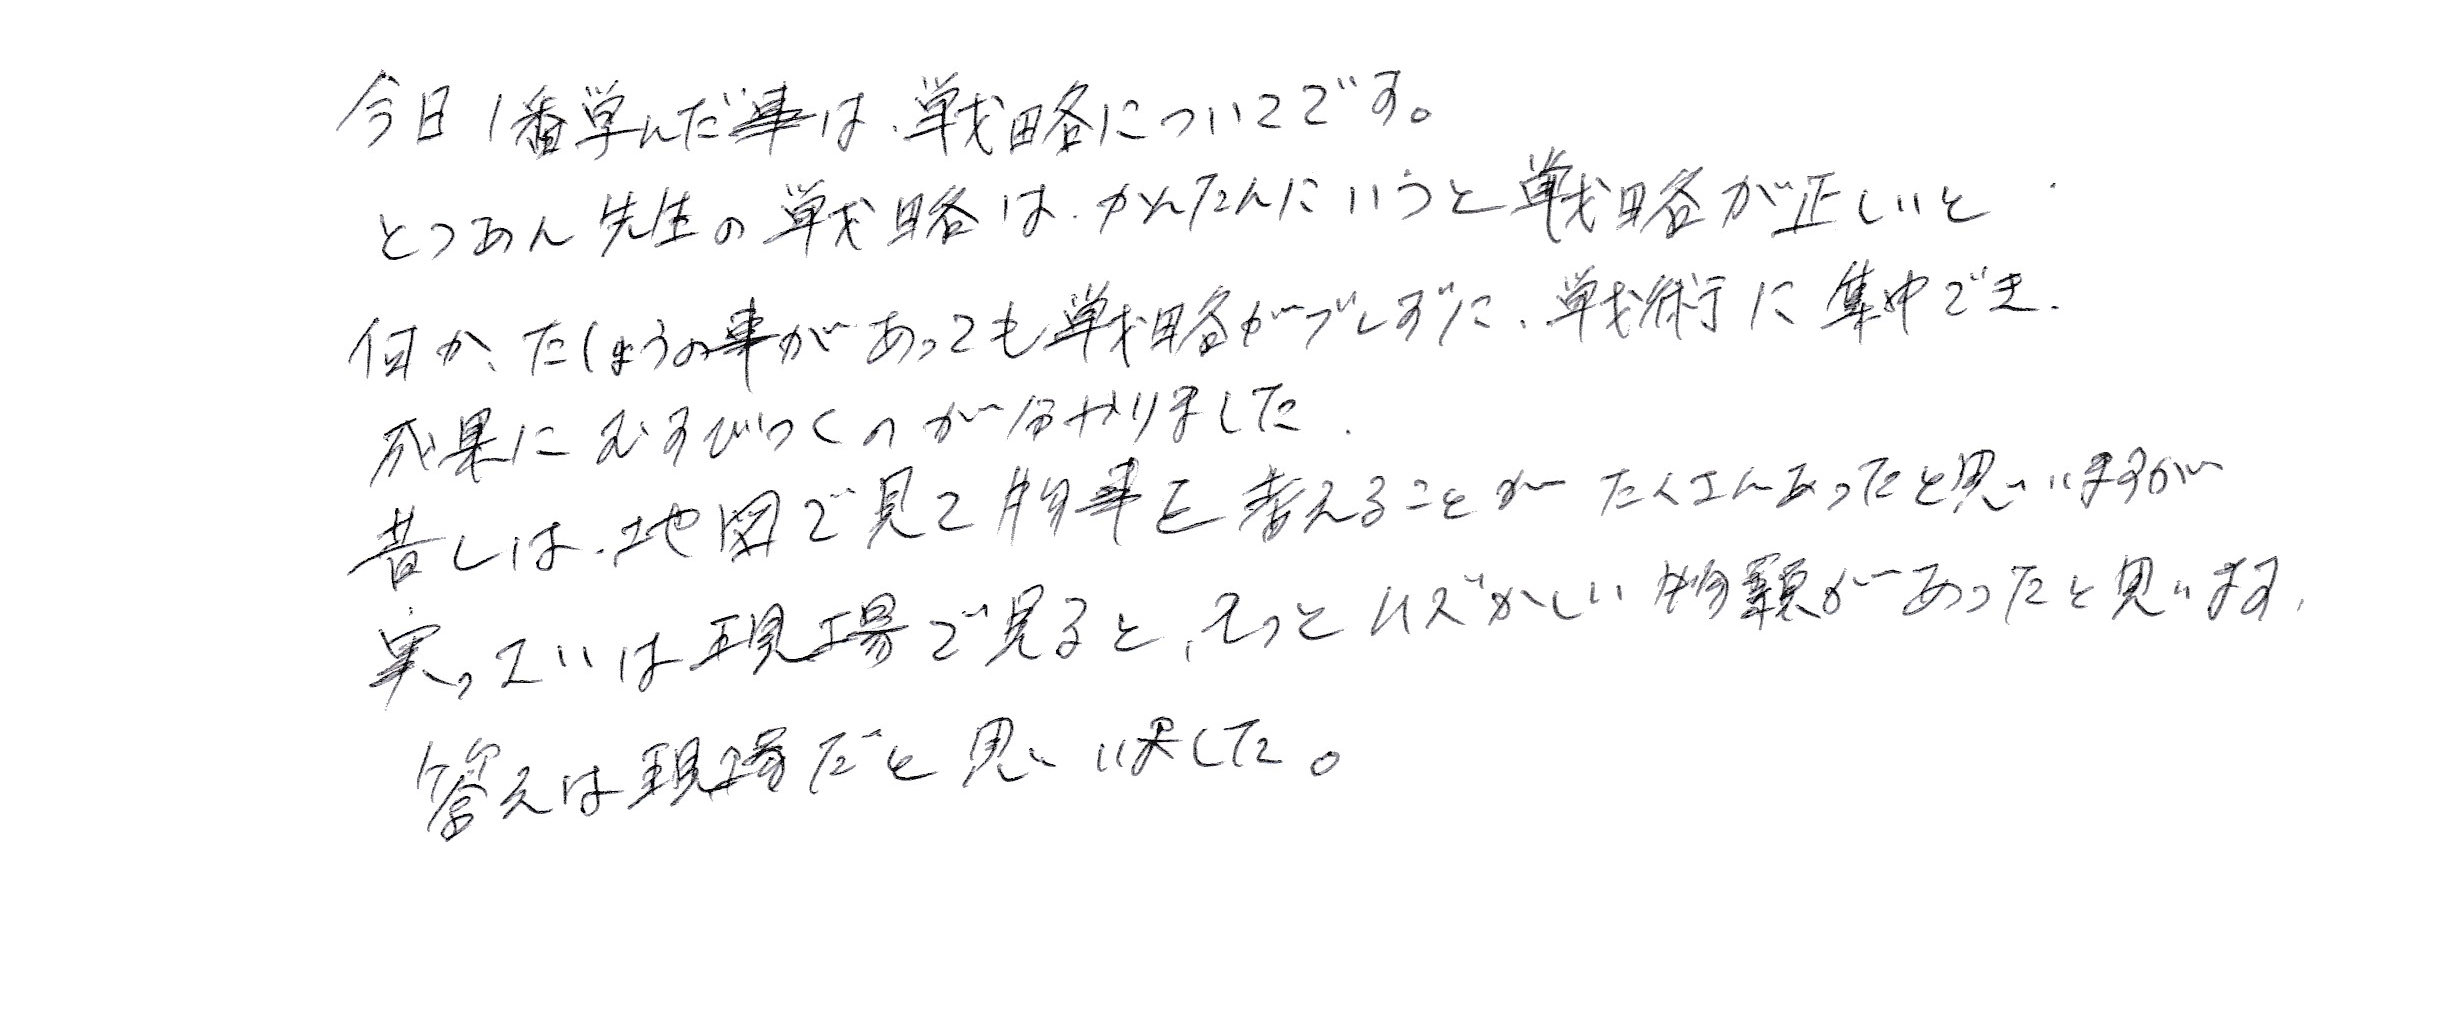 今日1番学んだ事は、戦略についてです。
とつあん先生の戦略は、かんたんにいうと戦略が正しいと
何か、たしょうの事があっても戦略がブレずに、戦術に集中でき、
成果にむすびつくのが分かりました。
昔しは、地図で見て物事を考えることがたくさんあったと思いますが
実っさいは現場で見ると、もっとムズかしい物題があったと思います。
答えは現場だと思いました。